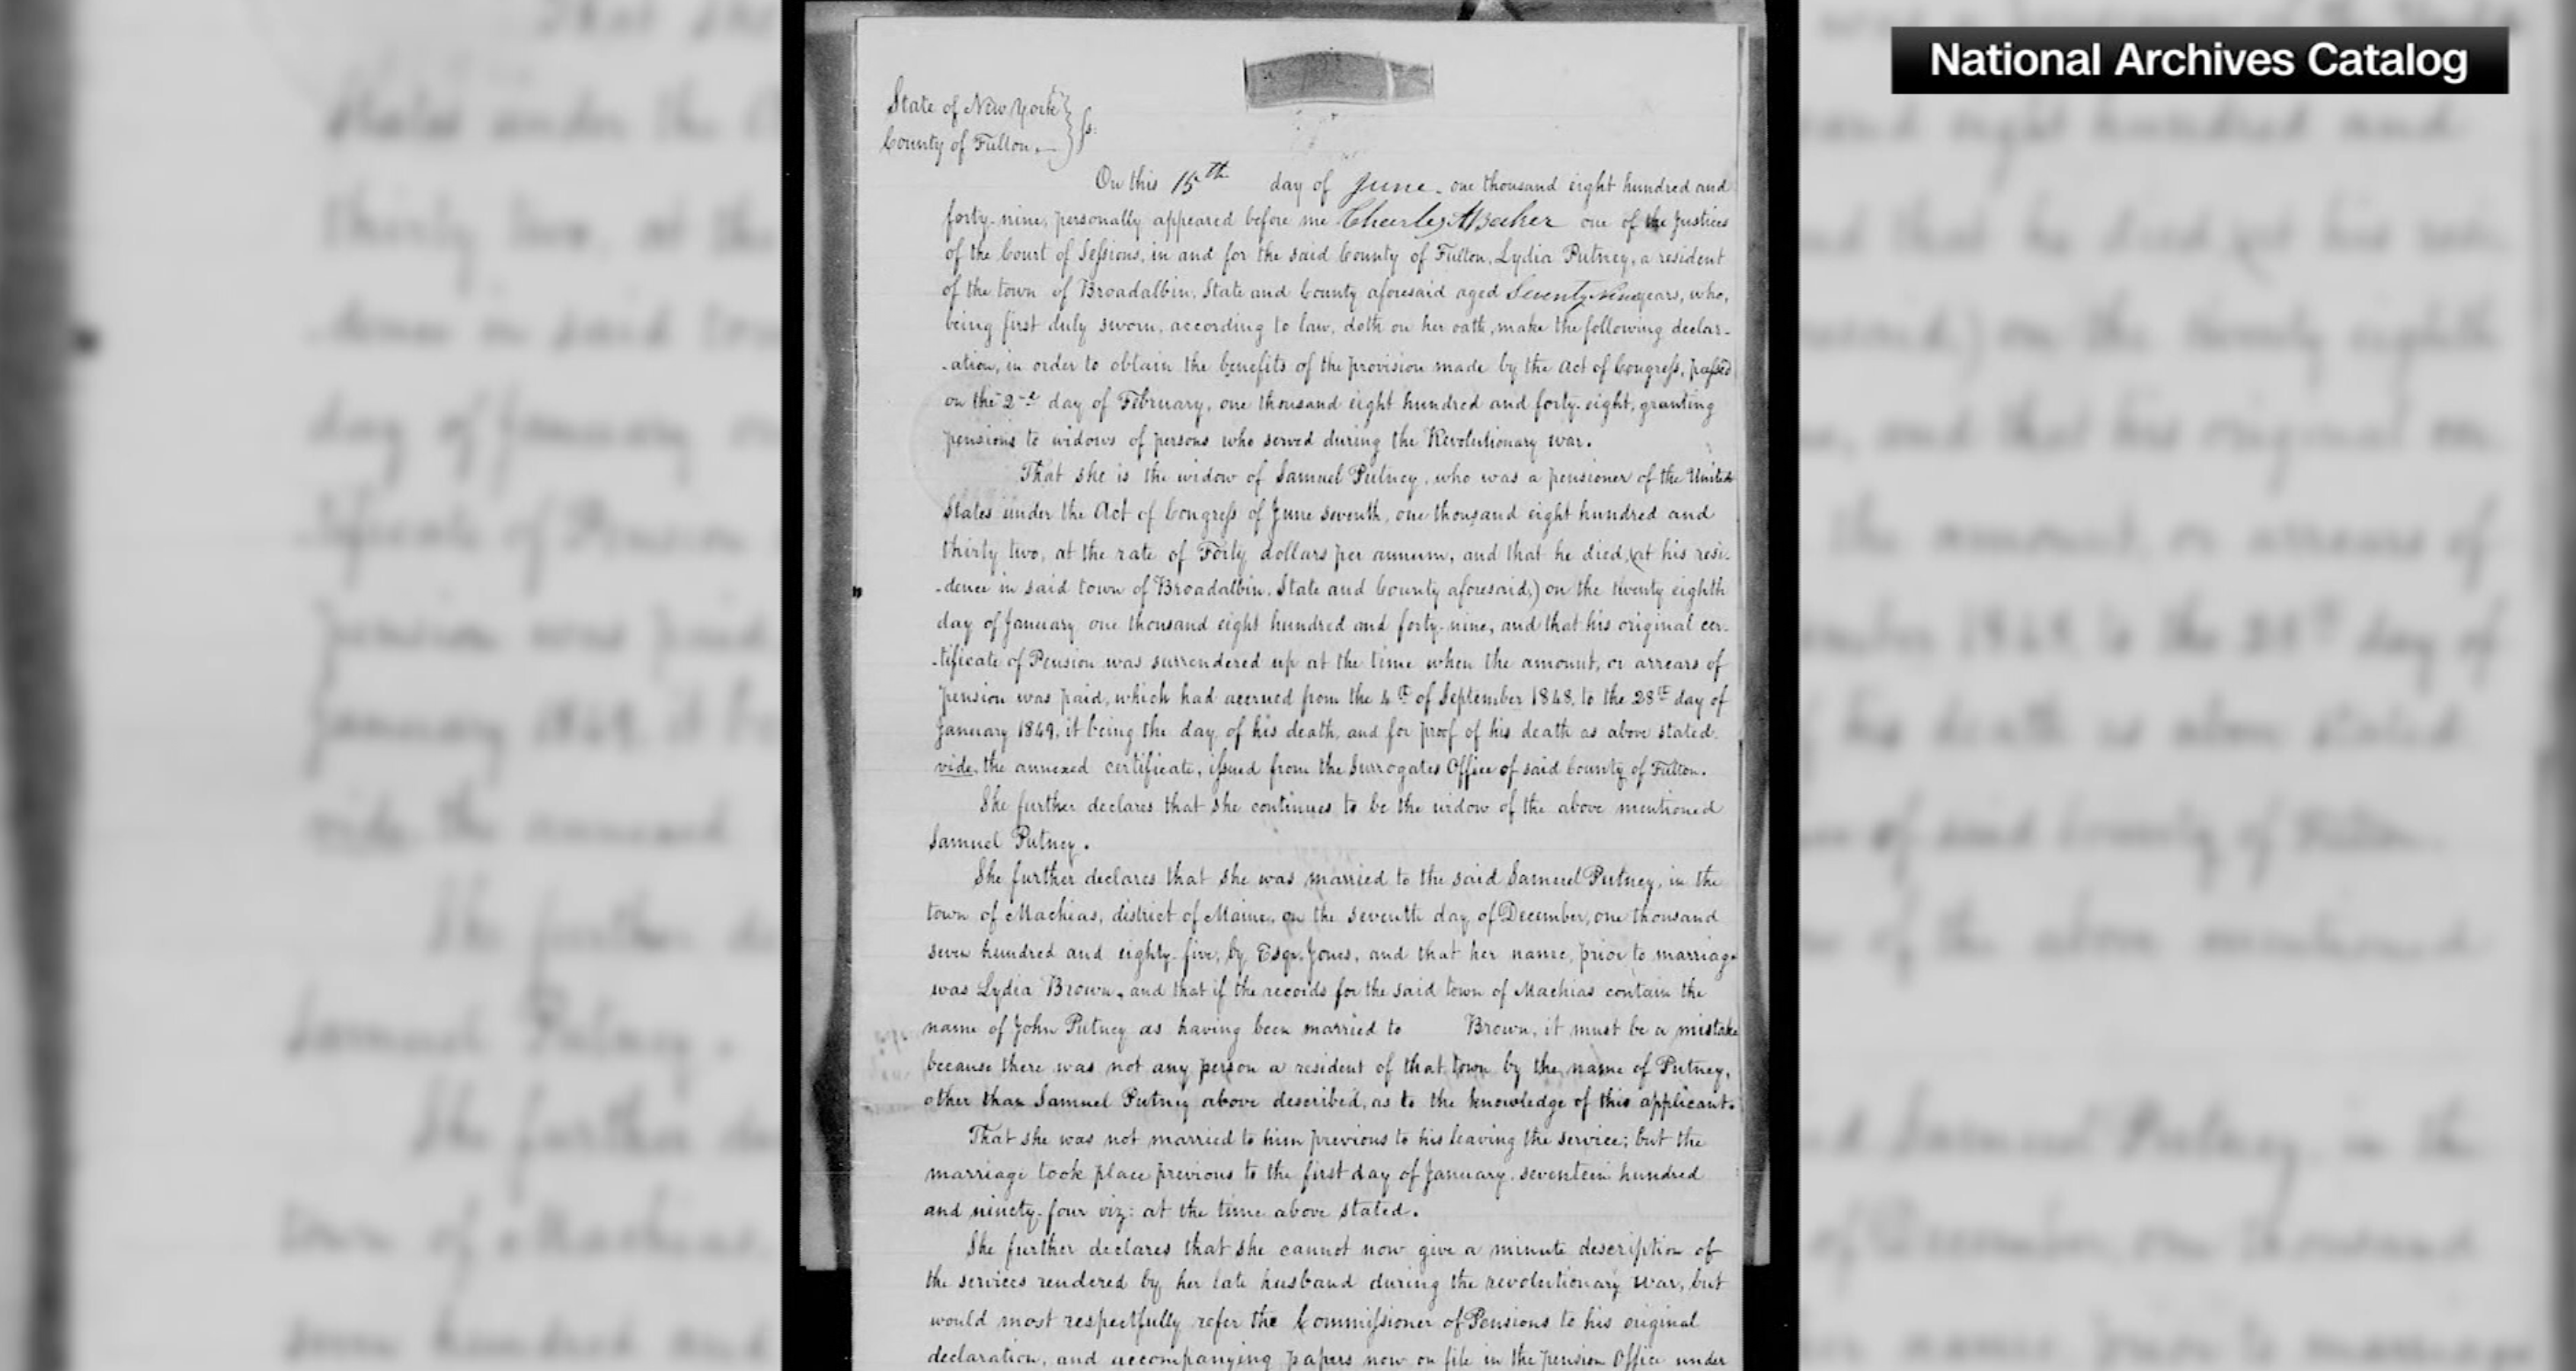 National Archives Catalog
State of New York } ss:
County of Fulton.
On this 15th day of June one thousand eight hundred and
forty-nine, personally appeared before me Charles A Baker one of the Justices
of the Court of Sessions, in and for the said County of Fulton, Lydia Putney, a resident
of the town of Broadalbin, State and County aforesaid aged Seventy Nine years, who,
being first duly sworn, according to law, doth on her oath, make the following declar-
-ation, in order to obtain the benefits of the provision made by the Act of Congress, passed
on the 2d day of February, one thousand eight hundred and forty-eight, granting
pensions to widows of persons who served during the Revolutionary war.
That she is the widow of Samuel Putney, who was a pensioner of the United
States under the Act of Congress of June seventh, one thousand eight hundred and
thirty two, at the rate of Forty dollars per annum, and that he died, (at his resi-
-dence in said town of Broadalbin, State and County aforesaid,) on the twenty eighth
day of January one thousand eight hundred and forty-nine, and that his original cer-
-tificate of Pension was surrendered up at the time when the amount, or arrears of
pension was paid, which had accrued from the 4th of September 1848, to the 28th day of
January 1849, it being the day of his death, and for proof of his death as above stated
vide, the annexed certificate, issued from the Surrogates Office of said County of Fulton.
She further declares that she continues to be the widow of the above mentioned
Samuel Putney.
She further declares that she was married to the said Samuel Putney, in the
town of Machias, district of Maine, on the seventh day of December, one thousand
seven hundred and eighty-five, by Esqr. Jones, and that her name, prior to marriage
was Lydia Brown, and that if the records for the said town of Machias contain the
name of John Putney as having been married to Brown, it must be a mistake
because there was not any person a resident of that town by the name of Putney,
other than Samuel Putney above described, as to the knowledge of this applicant.
That she was not married to him previous to his leaving the service; but the
marriage took place previous to the first day of January, seventeen hundred
and ninety-four viz: at the time above stated.
She further declares that she cannot now give a minute description of
the services rendered by her late husband during the revolutionary war, but
would most respectfully refer the Commissioner of Pensions to his original
declaration, and accompanying papers now on file in the pension Office under